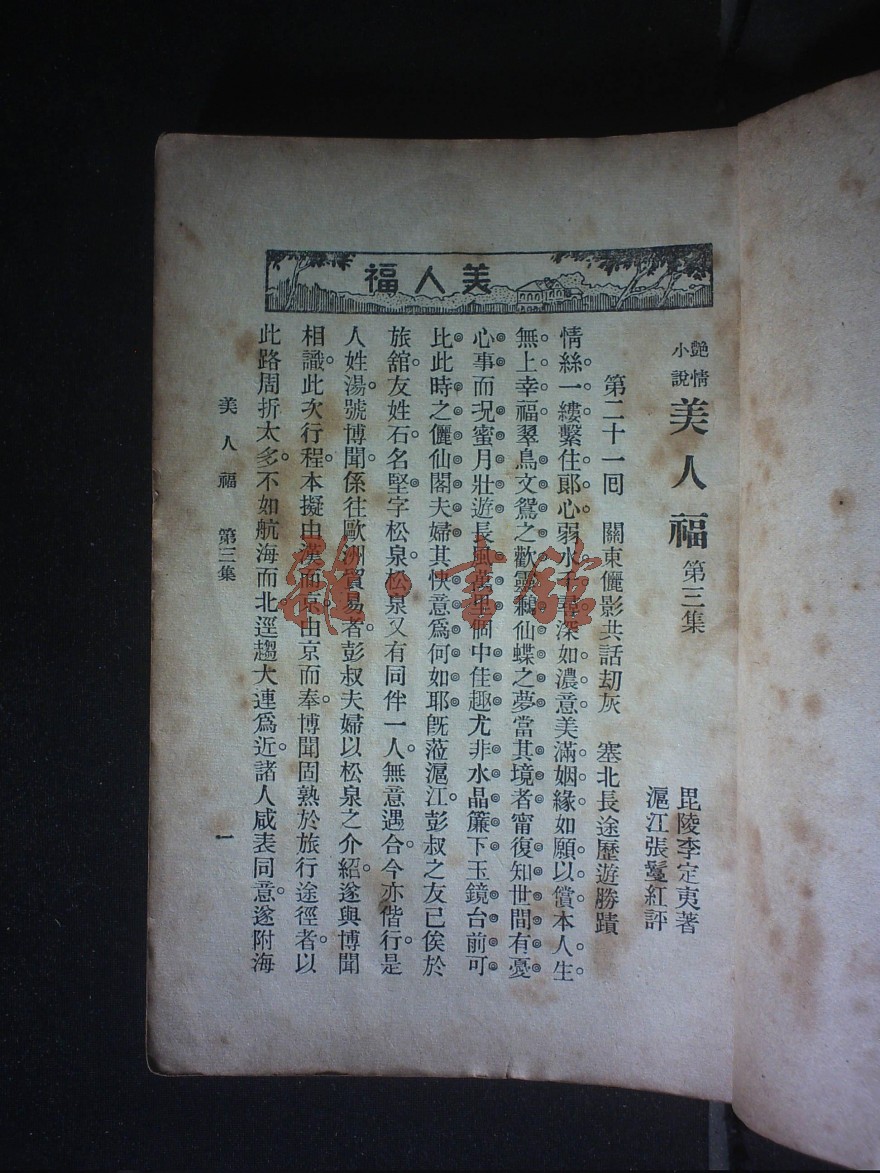 美人福
艷情小說 美人福 第三集
毘陵李定夷著
滬江張鬘紅評
第二十一囘 關東儷影共話刧灰 塞北長途歷游勝蹟
情絲一縷繫住郎心弱水千尋深如濃意美滿姻緣如願以償本人生
無上幸福翠鳥文鴛之歡靈鶼仙蝶之夢當其境者甯復知世間有憂
心事而况蜜月壯遊長風萬里個中佳趣尤非水晶簾下玉鏡台前可
比此時之儷仙閣夫婦其快意爲何如耶旣蒞滬江彭叔之友已俟於
旅舘友姓石名堅字松泉松泉又有同伴一人無意遇合今亦偕行是
人姓湯號博聞係往歐洲貿易者彭叔夫婦以松泉之介紹遂與博聞
相識此次行程本擬由漢而京由京而奉博聞固熟於旅行途徑者以
此路周折太多不如航海而北逕趨大連爲近諸人咸表同意遂附海
美人福 第三集
一
雜·書館